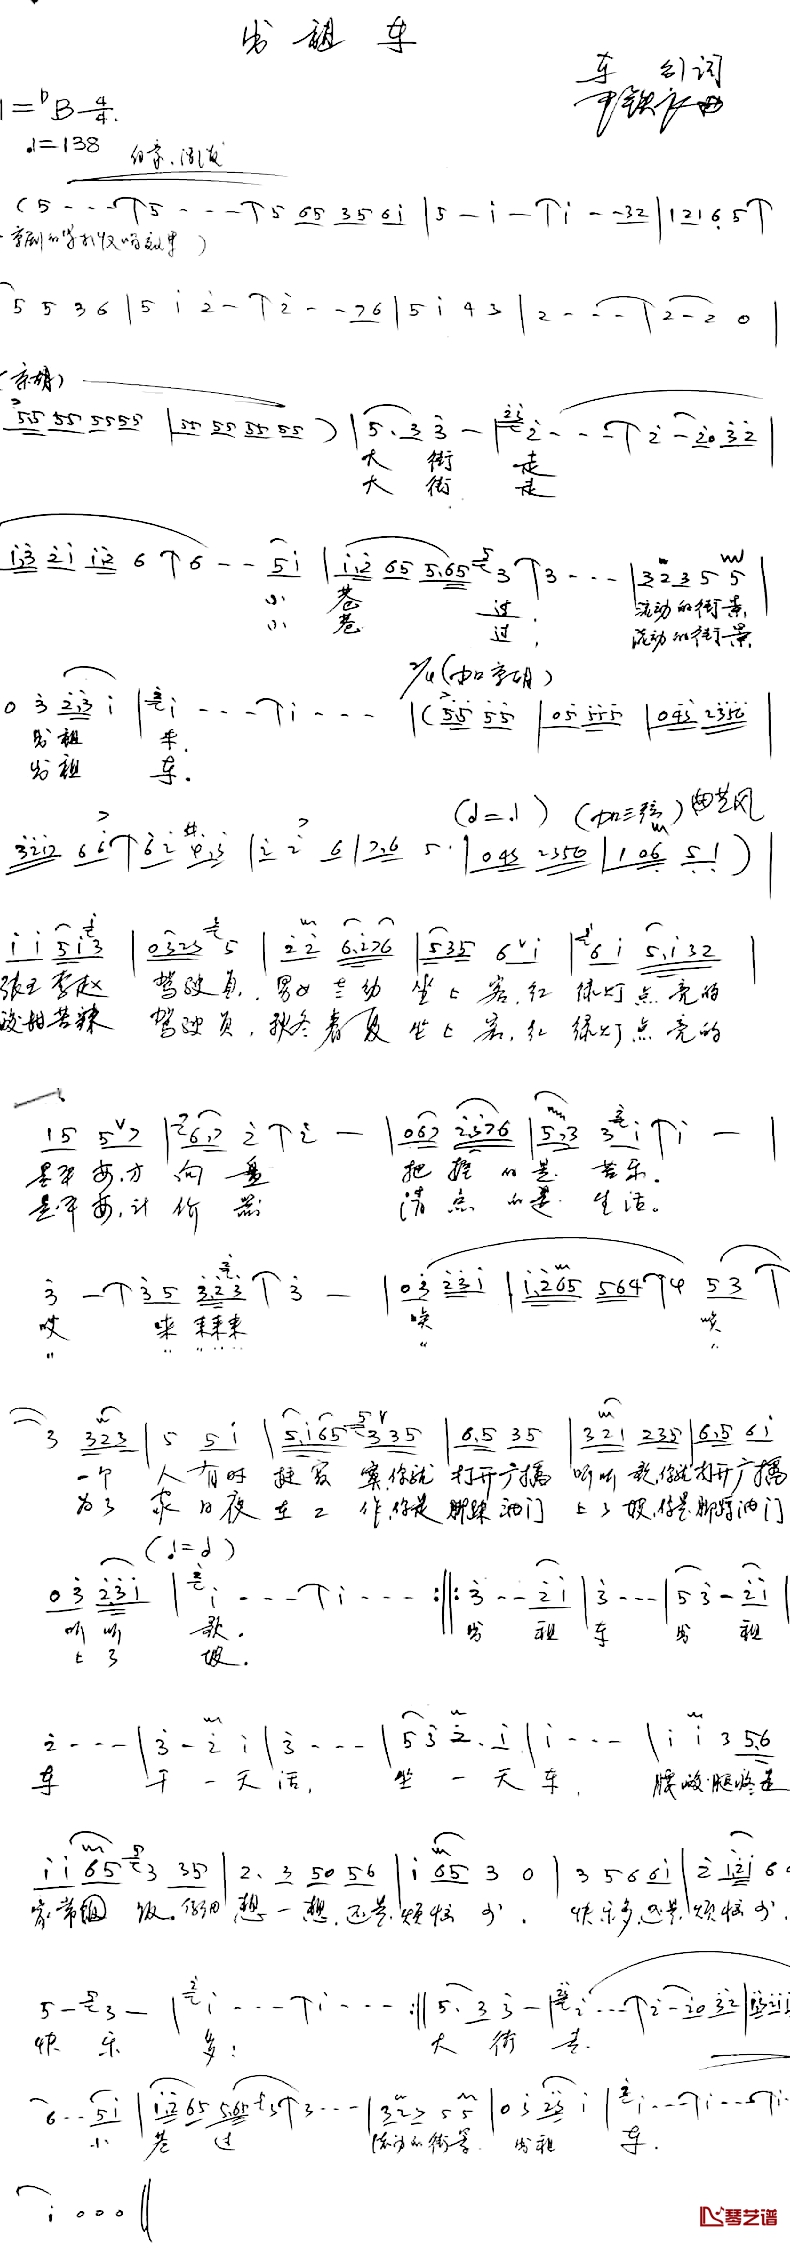 出租车
车 行 词
1=♭B 4/4
♩=138
(5 - - - 5 - - - 5 65 35 6i | 5 - i - i - - 32 | 1 216 5
5 5 3 6 | 5 i 2 - 2 - - 76 | 5 i 4 3 | 2 - - - 2 - 2 0 |
(京胡)
55 55 5555 | 55 55 55 55 ) | 5. 3 3 - | 2 - - - 2 - 20 32 |
大 街 走
大 街 走
1.3 21 12 6 6 - - 5i | i.2 65 5.65 3 3 - - - | 3 2 3 5 5 |
小 巷 过, 流动的街景,
小 巷 过, 流动的街景,
0 3 2.3 i | i - - - i - - - | 2/4 (加京胡) (55 55 | 05 555 | 043 2356 |
出租 车.
出租 车.
(加三弦) 曲艺风
043 2356 | 1 06 5 1 ) |
i i 5i3 | 0323 5 | 2 2 6.276 | 535 6 i | 6 i 5.i32 |
张王李赵 驾驶员, 男女老幼 坐上客, 红 绿灯点亮的
酸甜苦辣 驾驶员, 秋冬春夏 坐上客, 红 绿灯点亮的
15 5 7 | 6.7 2 2 - | 067 2.376 | 5.3 3 i i - |
是平安, 方 向 盘 把 握 的 是 苦乐.
是平安, 计 价 器 清 点 的 是 生活。
3 - 35 3.23 3 - | 03 231 | i.265 564 4 53
哎 来 来来来 唉 唉
" " " " " " "
3 323 | 5 5i | 5.i65 335 | 6.5 35 | 321 235 | 6.5 6i
一个 人有时 挺寂 寞, 你就 打开广播 听听 歌, 你就打开广播
为了 家日夜 在工 作, 你是 脚踩油门 上了 坡, 你是脚踩油门
03 2.3i | i - - - i - - - :||: 3 - - 2i | 3 - - - | 5 3 - 2i |
听 听 歌. 出 租 车 出 租
上了 坡.
2 - - - | 3 - 2 i | 3 - - - | 5 3 2. i | i - - - | i i 3 5.6
车 干 一 天 活, 坐 一 天 车, 腰酸腿疼是
i i 65 3 35 | 2. 3 50 56 | i 65 3 0 | 3 5 6 6i | 2 i2i 6
家常 饭. 仔细 想 一 想, 还是 烦恼 少, 快乐多, 还是烦恼少,
5 - 3 - | i - - - i - - - :|| 5. 3 3 - | 2 - - - 2 - 20 32
快 乐 多: 大 街 走.
6 - - 5i | i.265 5.65 3 3 - - - | 323 5 5 | 03 23 i | i - - - i - - - i - -
小 巷 过 流动的街景 出租 车.
i 0 0 0 ||
琴艺谱